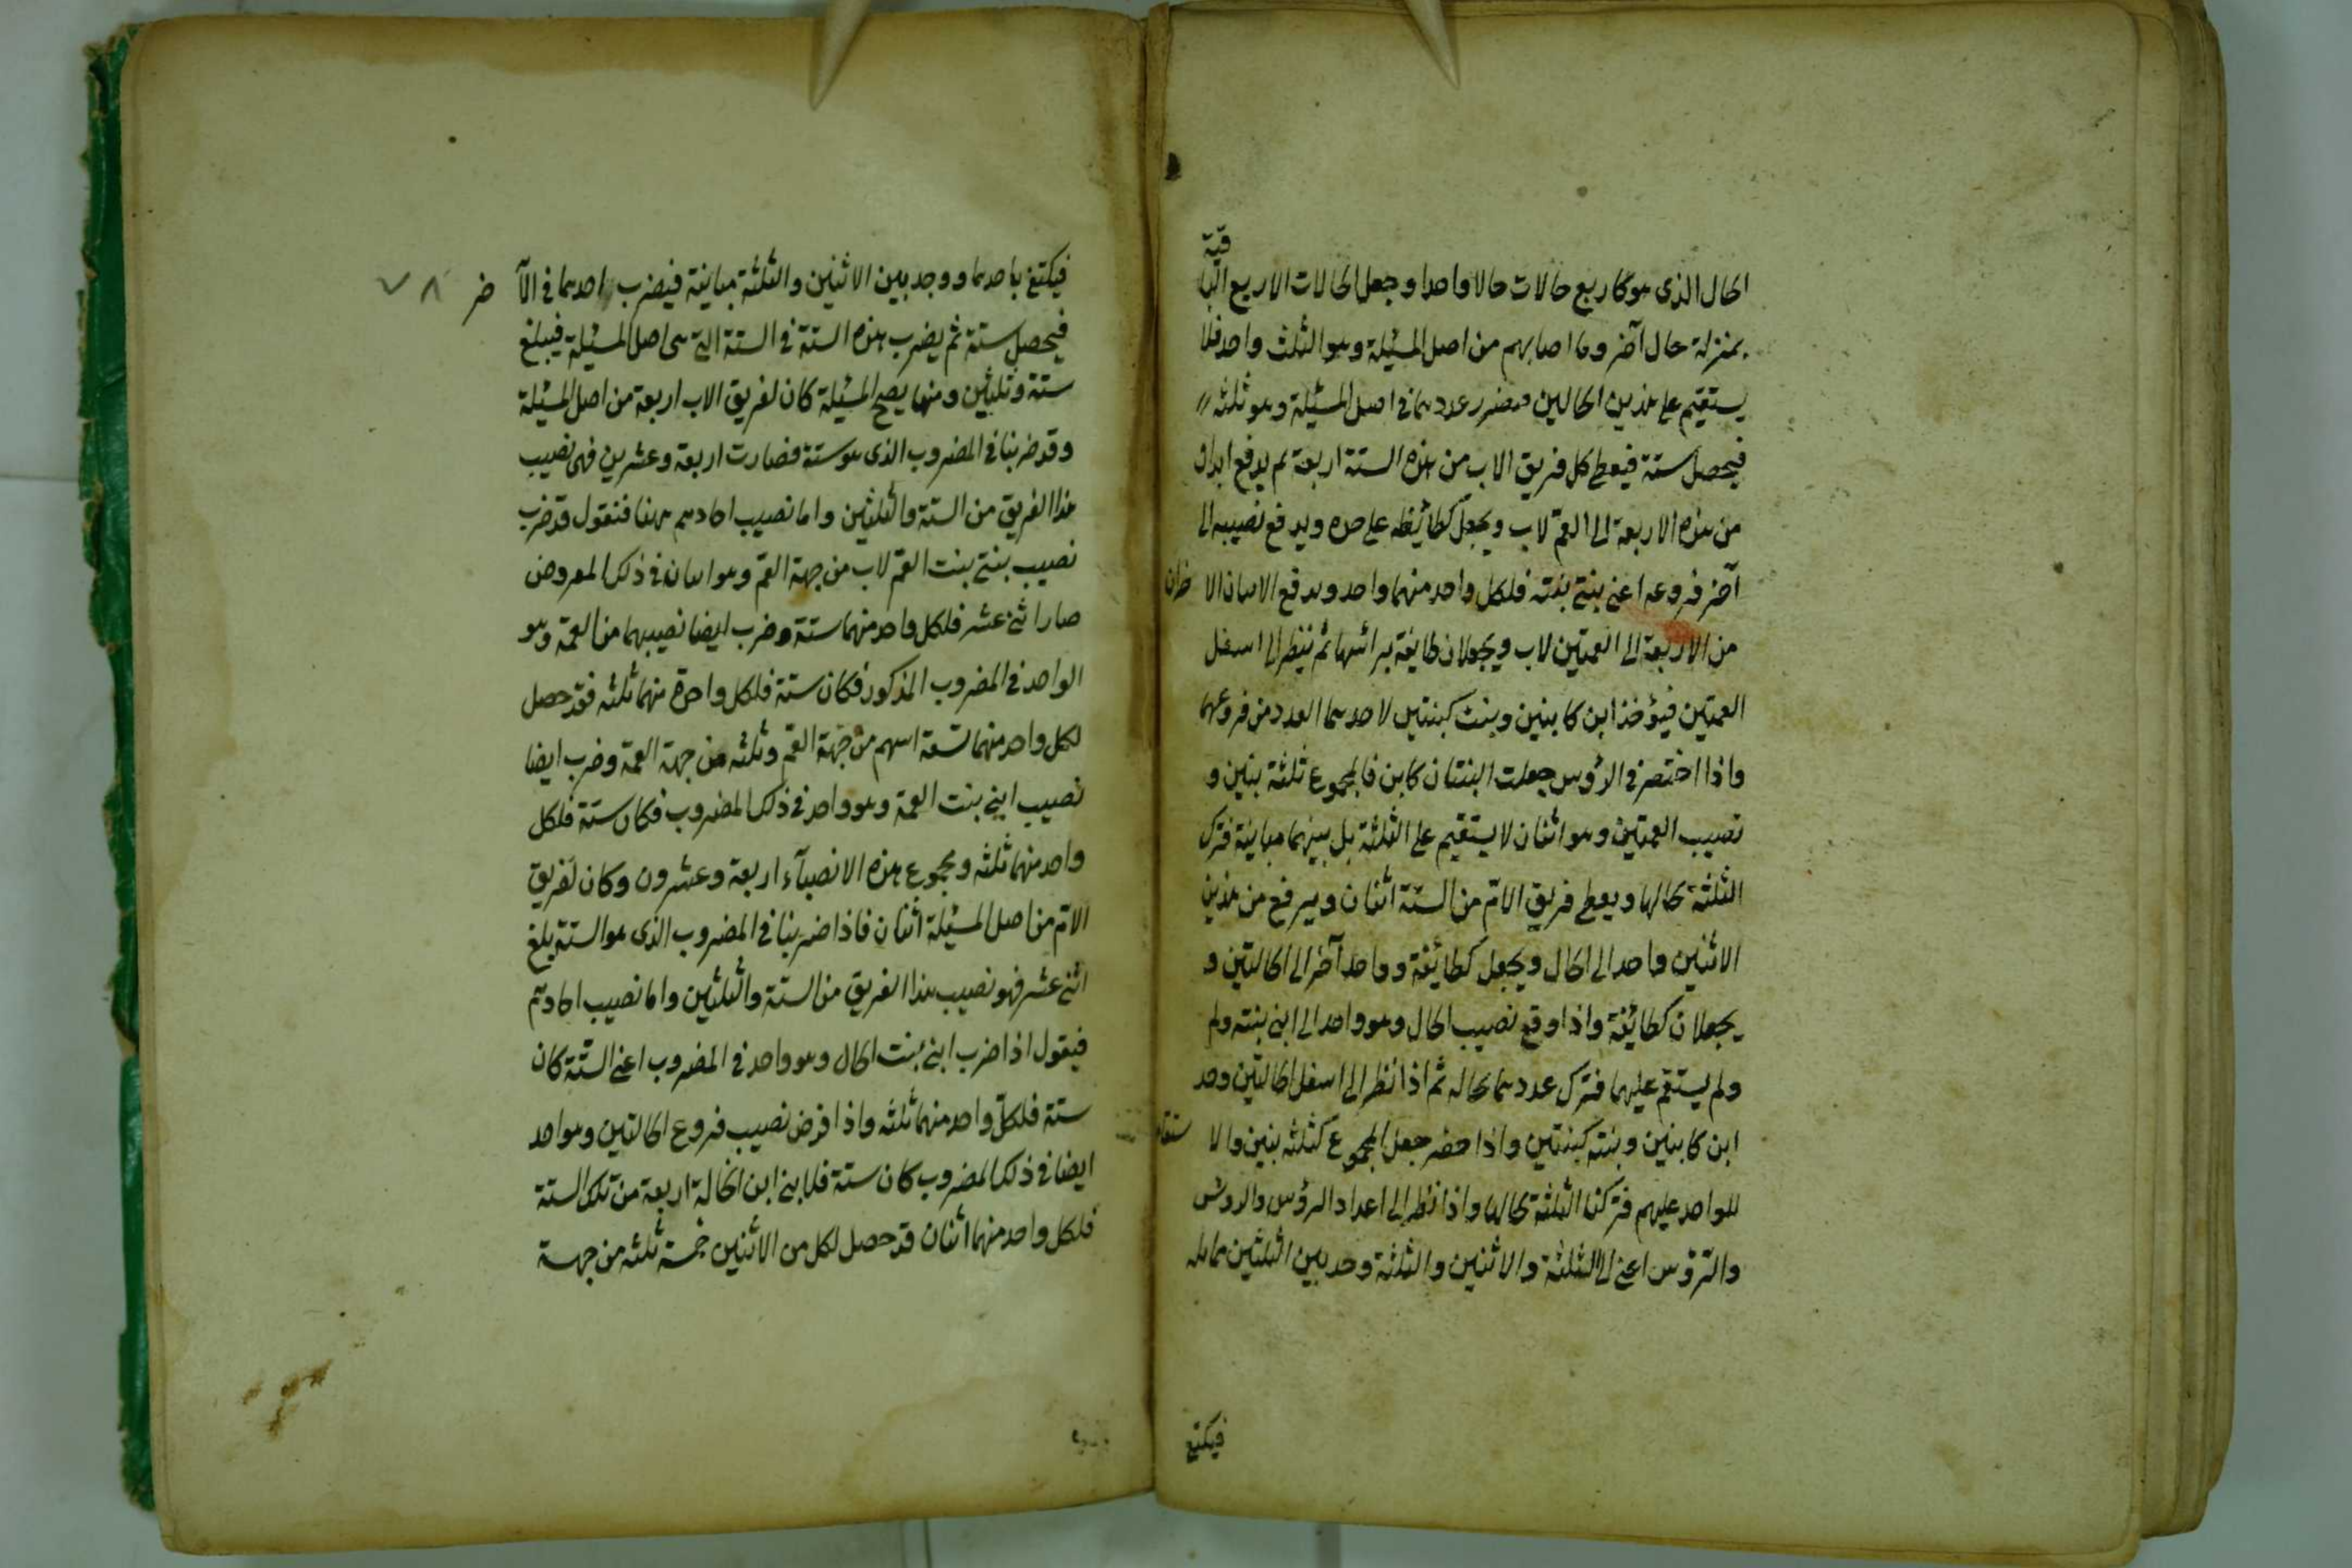 الخال الذى هو كاربع خالات خالا واحدا وجعل الخالات الاربع البا قية
بمنزلة خال آخر وما اصابهم من اصل المسئلة وهو الثلث واحد فلا
يستقيم على هذين الخالين فضرر عددهما فى اصل المسئلة وهو ثلثه
فيحصل ستة فيعطى كل فريق الاب من هذه الستة اربعة ثم يدفع
من هذه الاربعة الى العم لاب ويجعل كطائفة على حده ويدفع نصيبه الى
آخر فروعه اعنى بنتى بنته فلكل واحد منهما واحد ويدفع الاثنان الا خران
من الاربعة الى العمتين لاب ويجعلان طايفة برائسها ثم ينظر الى اسفل
العمتين فيؤخذ ابن كابنين وبنت كبنتين لاحدهما العدد من فروعهما
واذا اختصر فى الرؤس جعلت البنتان كابن فالمجموع ثلثة بنين و
نصيب العمتين وهو اثنان لا يستقيم على الثلثة بل بينهما مباينة فترك
الثلثة بحالها ويعطى فريق الام من الستة اثنان ويرفع من هذين
الاثنين واحد الى الخال ويجعل كطائفة وواحد آخر الى الخالتين و
يجعلان كطائفة واذا وقع نصيب الخال وهو واحد الى ابنى بنته ولم
ولم يستقم عليهما فترك عددهما بحاله ثم اذا نظر الى اسفل الخالتين وجد
ابن كابنين وبنته كبنتين واذا حضر جعل المجموع كثلثه بنين والا ستقام
للواحد عليهم فتركنا الثلثة بحالها واذا نظر الى اعداد الرؤس والروس
والرؤس اعنى الى الثلثة والاثنين والثلثة وجد بين الثلثين مماثله
فيكتفى
فيكتفى باحدهما ووجد بين الاثنين والثلثة مباينة فيضرب احدهما فى الآ خر
٧٨
فيحصل ستة ثم يضرب هذه الستة فى الستة التى هى اصل المسئلة فيبلغ
ستة وثلثين ومنها يصح المسئلة كان لفريق الاب اربعة من اصل المسئلة
وقد ضربنا فى المضروب الذى هو ستة فصارت اربعة وعشرين فهى نصيب
هذا الفريق من الستة والثلثين واما نصيب احادهم ههنا فنقول قد ضرب
نصيب بنتى بنت العم لاب من جهة العم وهو اثنان فى ذلك المعروض
صار اثنى عشر فلكل واحد منهما ستة وضرب ايضا نصيبهما من العمة وهو
الواحد فى المضروب المذكور فكان ستة فلكل واحدة منهما ثلثه فقد حصل
لكل واحد منهما تسعة اسهم من جهة العم وثلثه من جهة العمة وضرب ايضا
نصيب ابنى بنت العمة وهو واحد فى ذلك المضروب فكان ستة فلكل
واحد منهما ثلثه ومجموع هذه الانصبآء اربعة وعشرون وكان لفريق
الام من اصل المسئلة اثنان فاذا ضربنا فى المضروب الذى هو الستة بلغ
اثنى عشر فهو نصيب هذا الفريق من الستة والثلثين واما نصيب احادهم
فيقول اذا ضرب ابنى بنت الخال وهو واحد فى المضروب اعنى الستة كان
ستة فلكل واحد منهما ثلثه واذا فرض نصيب فروع الخالتين وهو واحد
ايضا فى ذلك المضروب كان ستة فلابنى ابن الخالة اربعة من تلك الستة
فلكل واحد منهما اثنان قد حصل لكل من الاثنين خمسة ثلثه من جهة